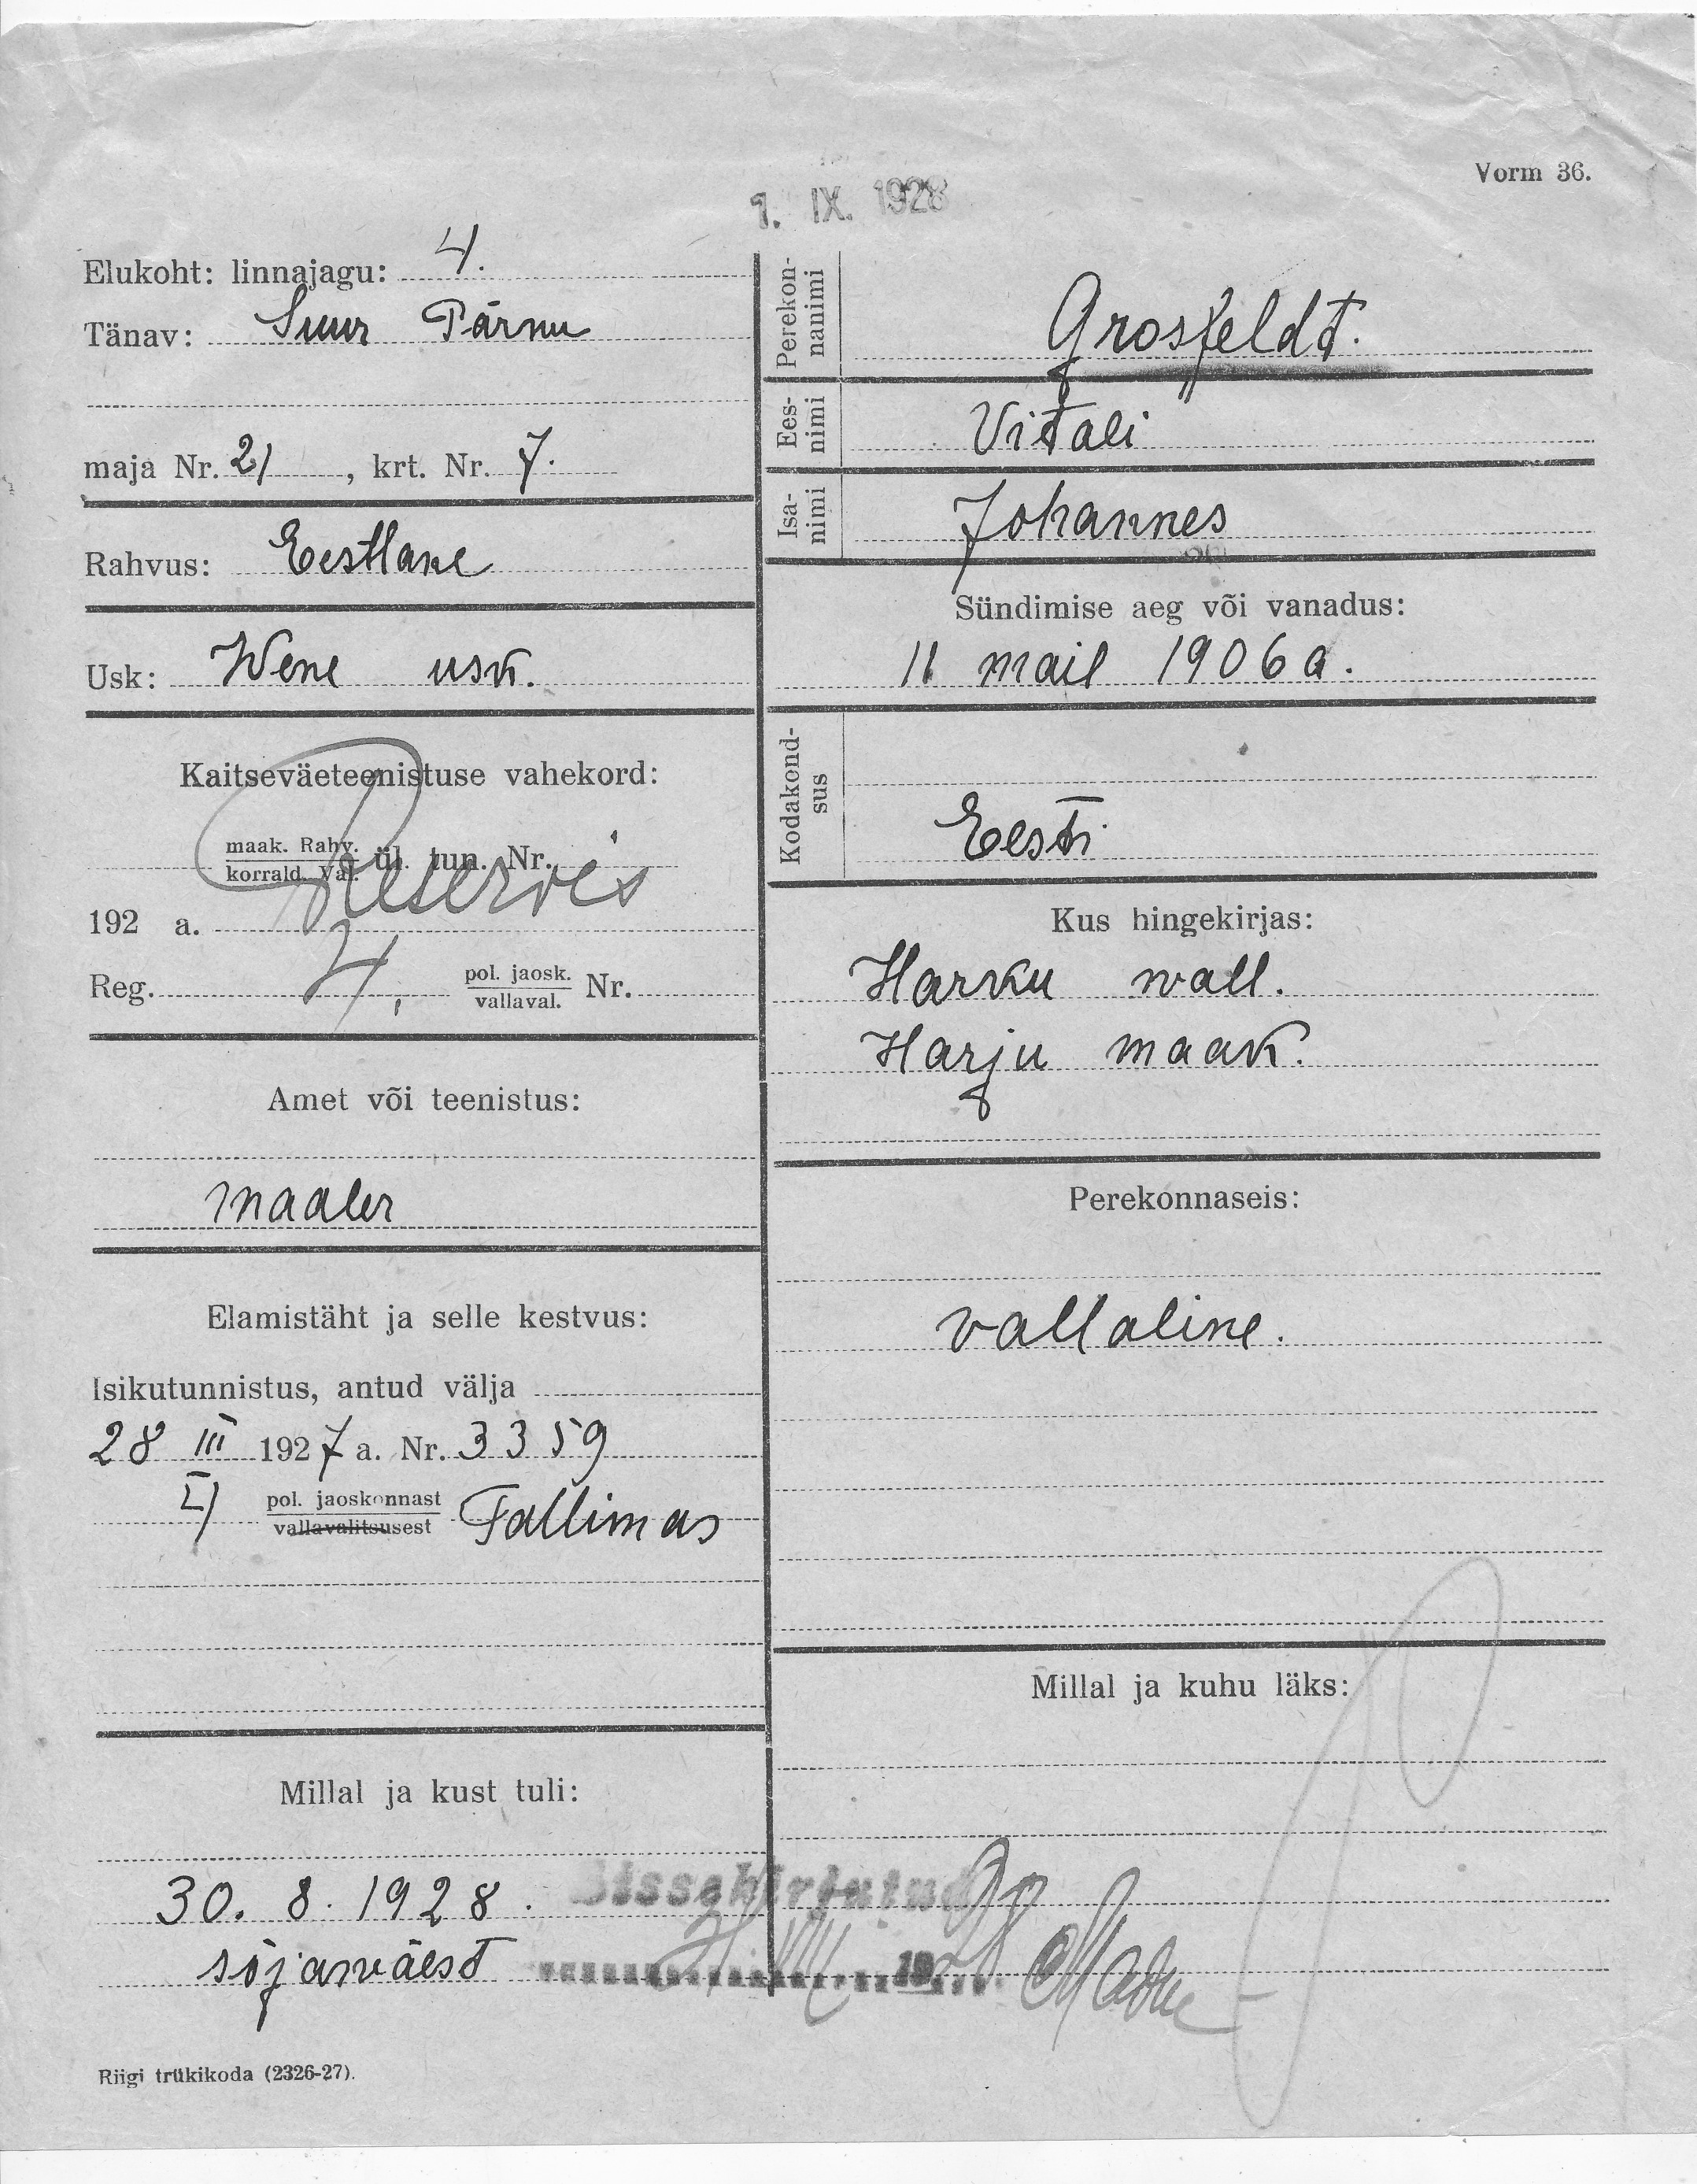 Vorm 36.
1. IX. 1928
Elukoht: linnajagu: 4.
Tänav: Suur Pärnu
maja Nr. 21, krt. Nr. 7.
Rahvus: Eestlane
Usk: Wene usk.
Kaitseväeteenistuse vahekord:
maak. Rahv.
korrald. Val. ül. tun. Nr.
Reservis
192 a.
Reg. 4. pol. jaosk.
vallaval. Nr.
Amet või teenistus:
maaler
Elamistäht ja selle kestvus:
Isikutunnistus, antud välja
28 III 1927 a. Nr. 3359
pol. jaoskonnast
vallavalitsusest Tallinnas
Millal ja kust tuli:
30. 8. 1928.
sõjawäest
Riigi trükikoda (2326-27).
Perekon-
nanimi
Grosfeldt.
Ees-
nimi
Vitali
Isa-
nimi
Johannes
Sündimise aeg või vanadus:
11 mail 1906 a.
Kodakond-
sus
Eesti
Kus hingekirjas:
Harku wall.
Harju maak.
Perekonnaseis:
vallaline.
Millal ja kuhu läks:
Sissekirjutud
19